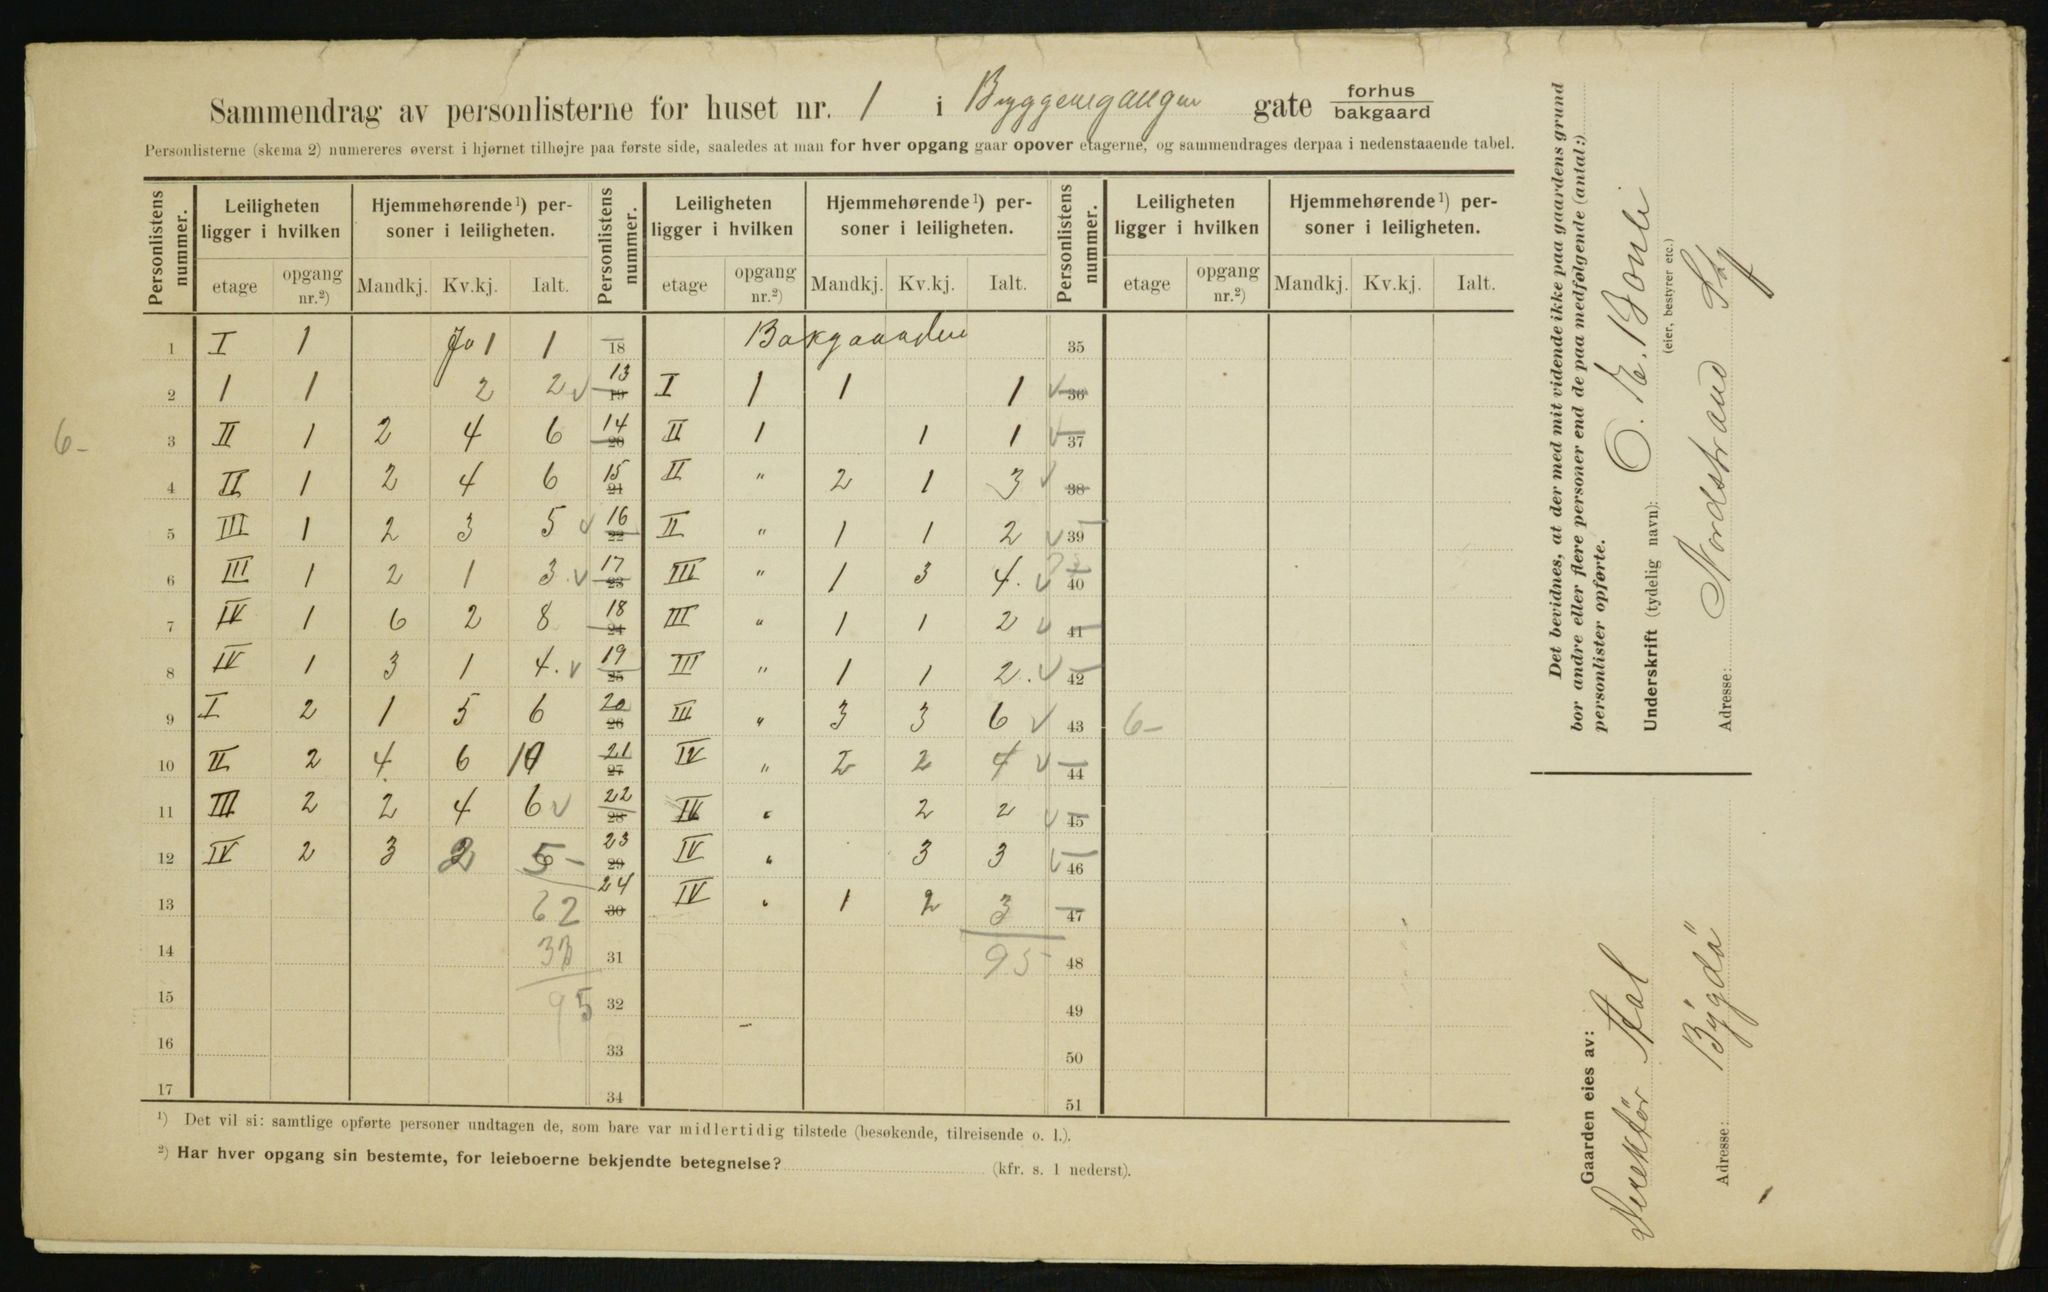 Sammendrag av personlisterne for huset nr. 1 i Byggenegangen gate forhus/bakgaard
Personlisterne (skema 2) numereres øverst i hjørnet tilhøjre paa første side, saaledes at man for hver opgang gaar opover etagerne, og sammendrages derpaa i nedenstaaende tabel.
Personlistens nummer. Leiligheten ligger i hvilken Hjemmehørende ¹) personer i leiligheten. Personlistens nummer. Leiligheten ligger i hvilken Hjemmehørende ¹) personer i leiligheten. Personlistens nummer. Leiligheten ligger i hvilken Hjemmehørende ¹) personer i leiligheten.
etage opgang nr.²) Mandkj. Kv.kj. Ialt. etage opgang nr.²) Mandkj. Kv.kj. Ialt. etage opgang nr.²) Mandkj. Kv.kj. Ialt.
1 I 1 1 1 18 Bakgaarden 35
2 1 1 2 2 ✓ 13 19 I 1 1 1 ✓ 36
6- 3 II 1 2 4 6 14 20 II 1 1 1 ✓ 37
4 II 1 2 4 6 15 21 II " 2 1 3 ✓ 38
5 III 1 2 3 5 ✓ 16 22 II " 1 1 2 ✓ 39
6 III 1 2 1 3. ✓ 17 23 III " 1 3 4. ✓ 40
7 IV 1 6 2 8 18 24 III " 1 1 2 ✓ 41
8 IV 1 3 1 4. ✓ 19 25 III " 1 1 2. ✓ 42
9 I 2 1 5 6 20 26 III " 3 3 6 ✓ 43 6-
10 II 2 4 6 10 21 27 IV " 2 2 4 ✓ 44
11 III 2 2 4 6 ✓ 22 28 IV " 2 2 ✓ 45
12 IV 2 3 2 5- 23 29 IV " 3 3 ✓ 46
13 62 24 30 IV " 1 2 3 47
14 33 31 95 48
15 95 32 49
16 33 50
17 34 51
¹) Det vil si: samtlige opførte personer undtagen de, som bare var midlertidig tilstede (besøkende, tilreisende o. l.).
²) Har hver opgang sin bestemte, for leieboerne bekjendte betegnelse? (kfr. s. 1 nederst).
Det bevidnes, at der med mit vidende ikke paa gaardens grund
bor andre eller flere personer end de paa medfølgende (antal:)
personlister opførte.
Underskrift (tydelig navn):
(eier, bestyrer etc.)
Adresse: Nordstrand
Gaarden eies av:
Direktör
Adresse: Bygdö